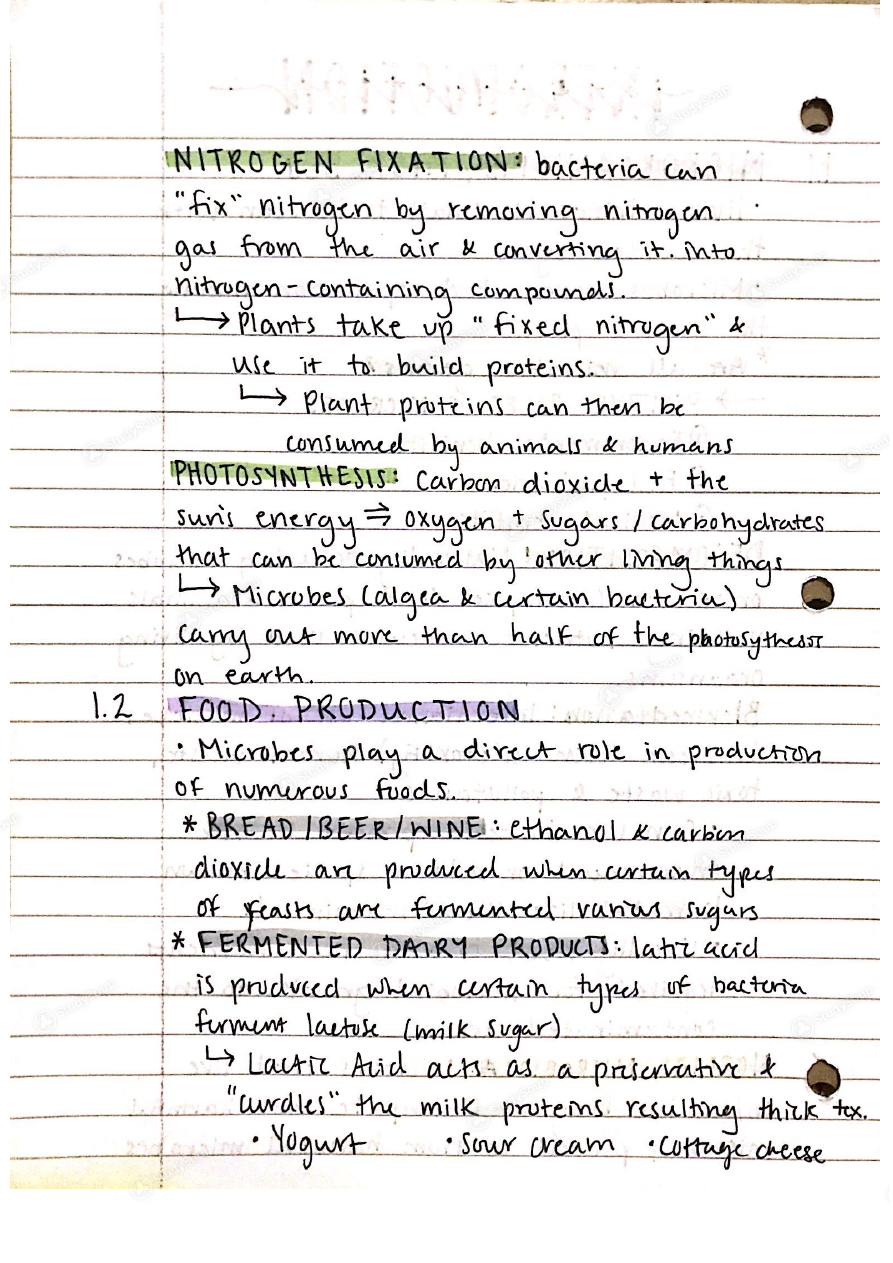 NITROGEN FIXATION: bacteria can
"fix" nitrogen by removing nitrogen
gas from the air & converting it into
nitrogen-containing compounds.
↳ Plants take up "fixed nitrogen" &
use it to build proteins.
↳ Plant proteins can then be
consumed by animals & humans
PHOTOSYNTHESIS: Carbon dioxide + the
sun's energy ⇒ oxygen + sugars / carbohydrates
that can be consumed by other living things
↳ Microbes (algea & certain bacteria)
carry out more than half of the photosythesis
on earth.
1.2 FOOD PRODUCTION
• Microbes play a direct role in production
of numerous foods.
* BREAD / BEER / WINE: ethanol & carbon
dioxide are produced when certain types
of yeasts are fermented various sugars
* FERMENTED DAIRY PRODUCTS: latic acid
is produced when certain types of bacteria
ferment lactose (milk sugar)
↳ Lactic Acid acts as a preservative &
"curdles" the milk proteins resulting thick tex.
• Yogurt • Sour cream • Cottage cheese